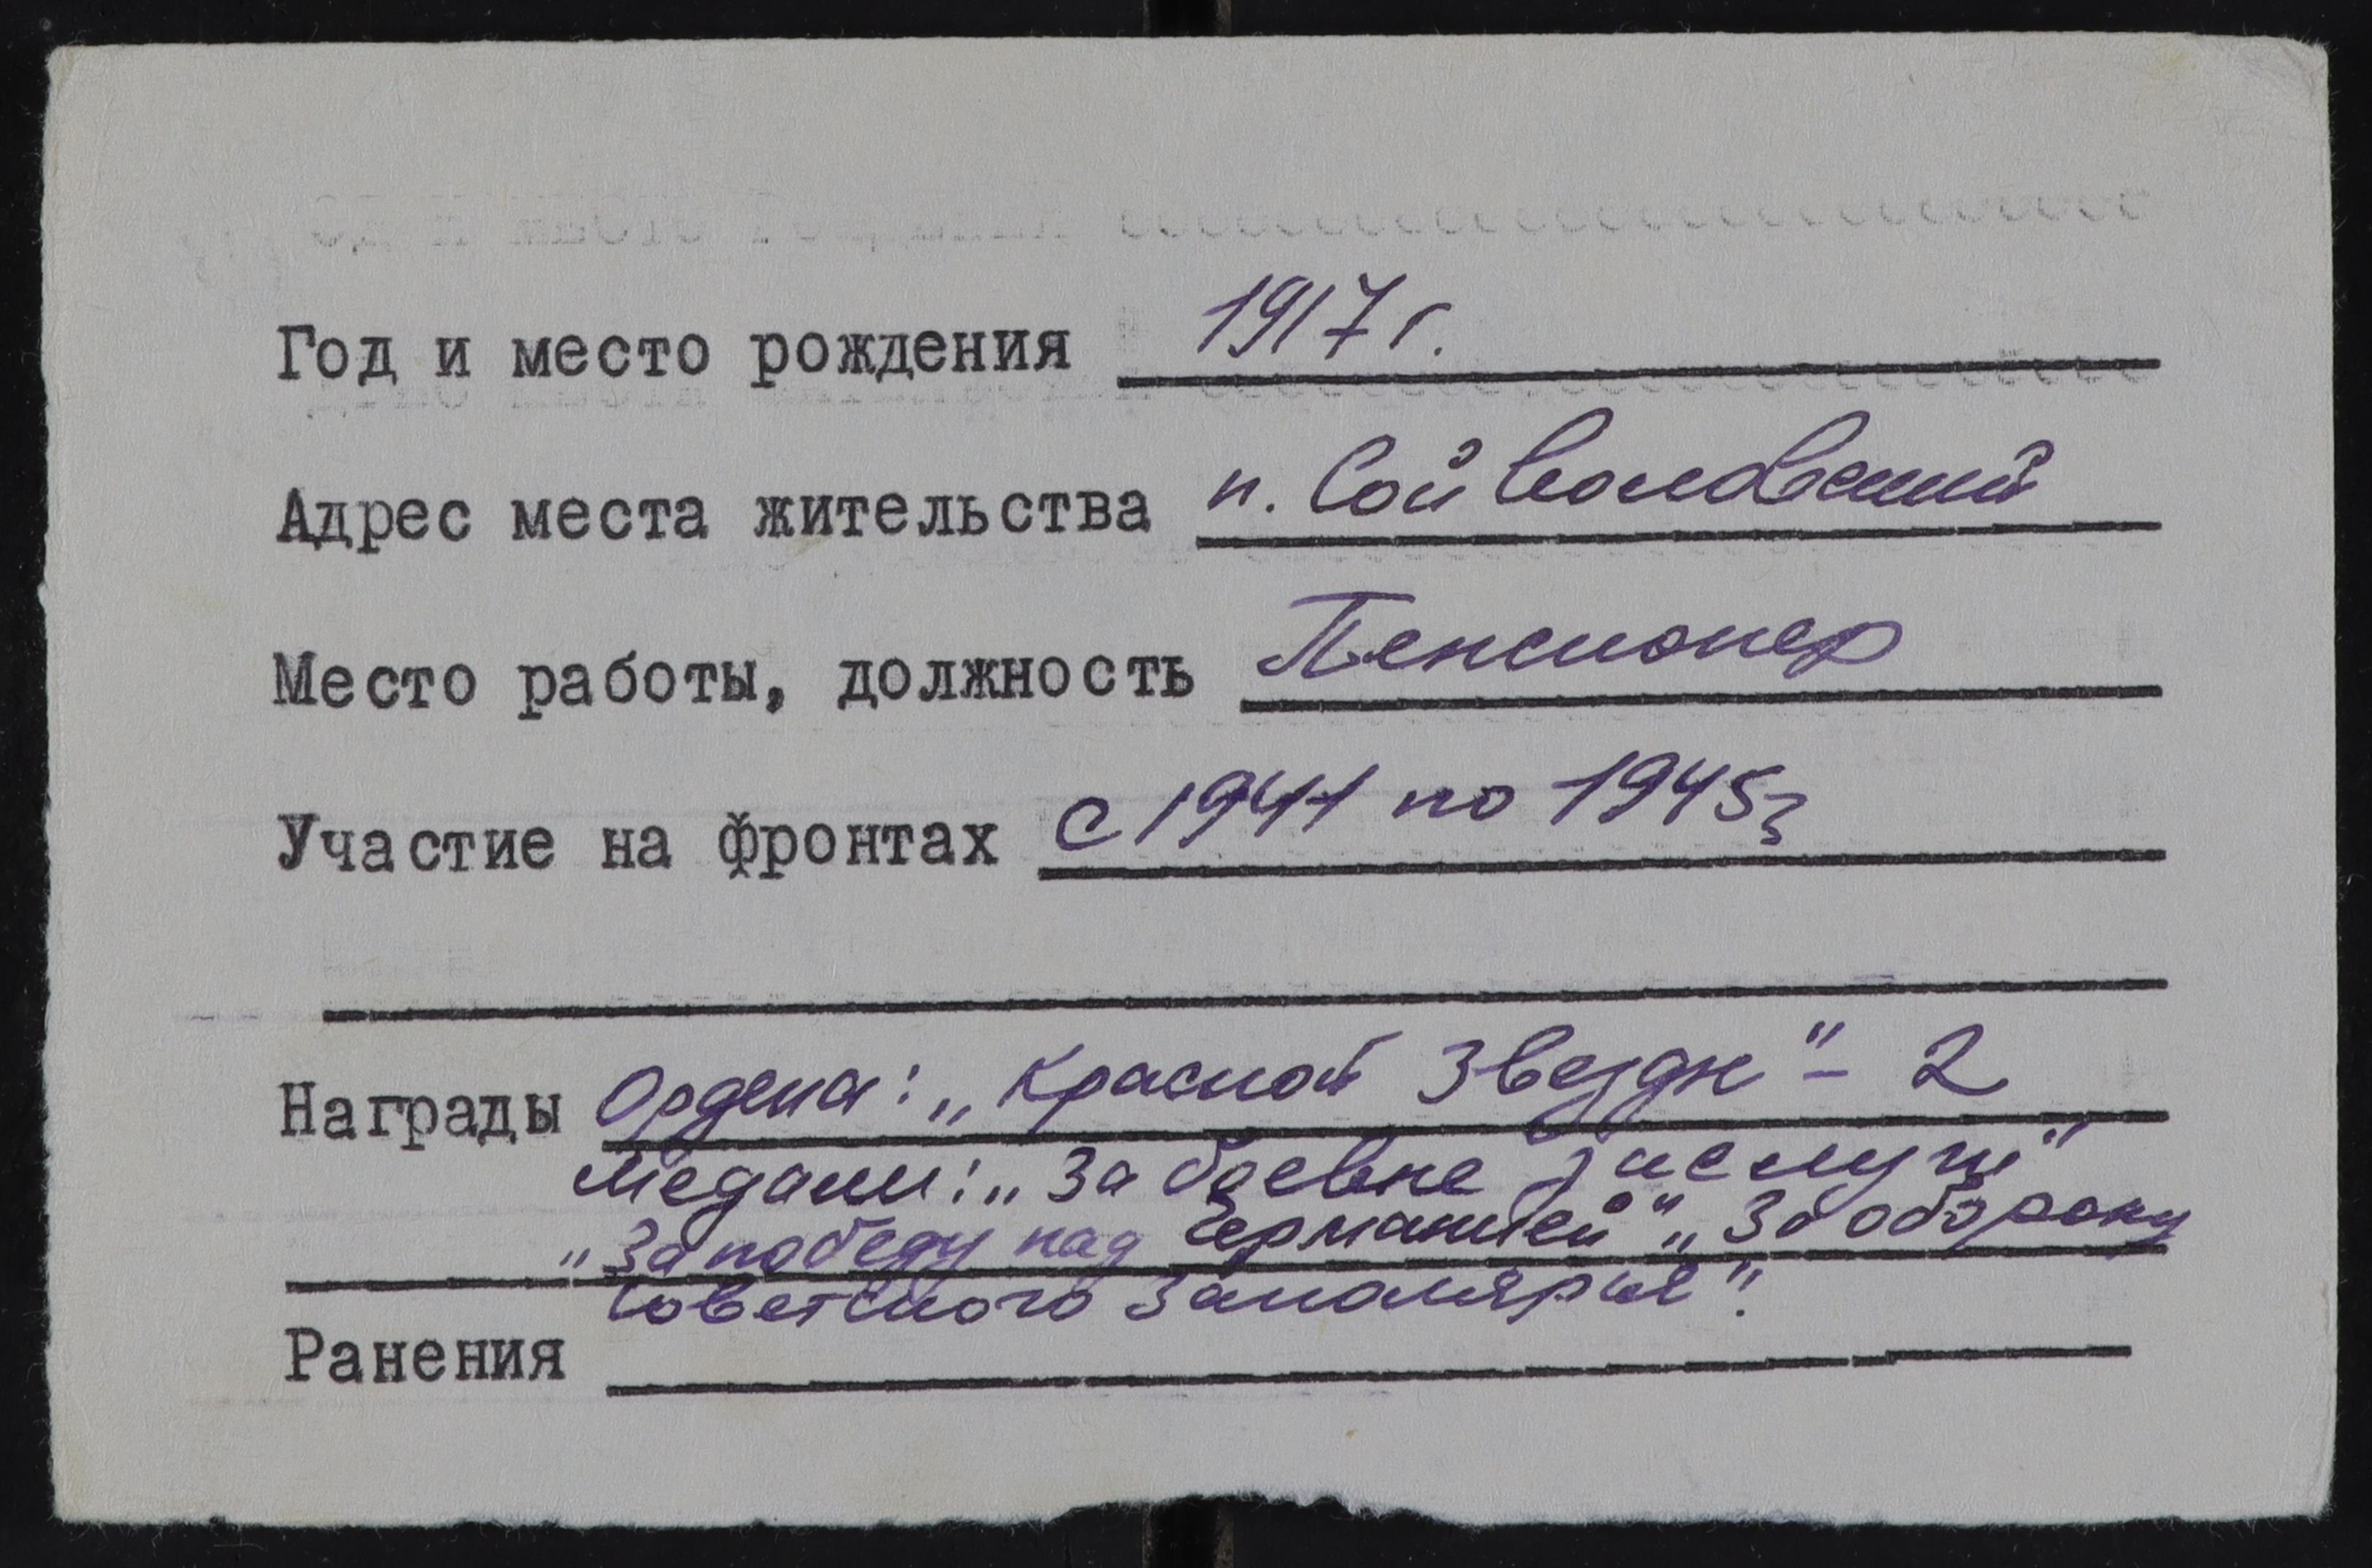 Год и место рождения 1917 г.
Адрес места жительства п. Сойволовский
Место работы, должность Пенсионер
Участие на фронтах с 1941 по 1945г
Награды Ордена: „Красной Звезды" - 2
Медали: „За боевые заслуги"
„За победу над Германией" „За оборону
Советского Заполярья".
Ранения